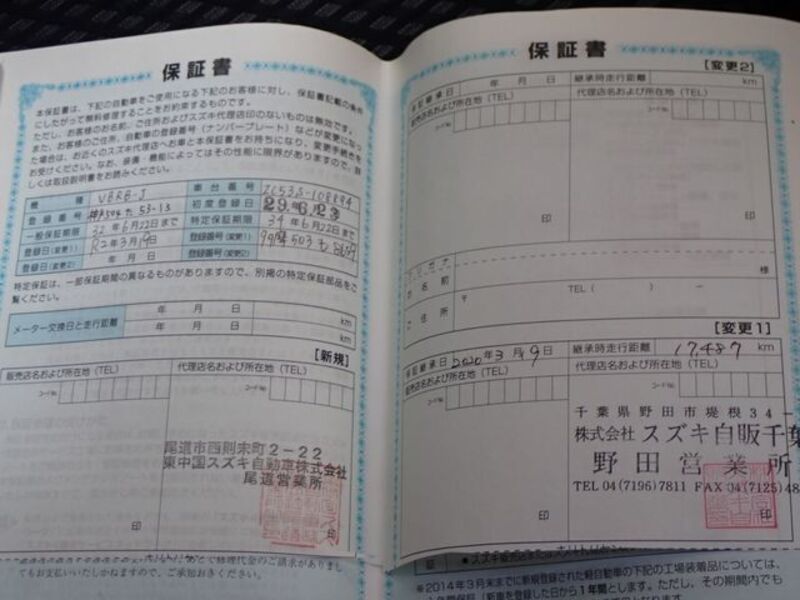 保証書
本保証書は、下記の自動車をご使用になる下記のお客様に対し、保証書記載の条件
にしたがって無料修理することをお約束するものです。
ただし、お客様のお名前、ご住所およびスズキ代理店印のないものは無効です。
また、お客様のご住所、自動車の登録番号（ナンバープレート）などが変更になっ
た場合は、お近くのスズキ代理店へお車と本保証書をお持ちになり、変更手続きを
お受けください。なお、装備・機能によってはその性能に限界がありますので、詳
しくは取扱説明書をお読みください。
機種 VBRB-J 車台番号 ZC53S-108894
登録番号 た 53-13 初度登録日 29.6.23
一般保証期限 32年6月22日まで 特定保証期限 34年6月22日まで
登録日(変更1) R2年3月19日 登録番号(変更1) 503 も
登録日(変更2) 年 月 日 登録番号(変更2)
特定保証は、一部保証期間の異なるものがありますので、別掲の特定保証部品をご
覧ください。
メーター交換日と走行距離 年 月 日 km
年 月 日 km
[新規]
販売店名および所在地（TEL） 代理店名および所在地（TEL）
コードNo. コードNo.
尾道市西則末町2-22
東中国スズキ自動車株式会社
尾道営業所
印 印
もお支払いいたしかねますので、ご承知おきください。
保証書
[変更2]
保証継承日 年 月 日 継承時走行距離 km
販売店名および所在地（TEL） 代理店名および所在地（TEL）
コードNo. コードNo.
印 印
フリガナ
お名前 様
ご住所 〒 TEL（ ） －
[変更1]
保証継承日 2020年3月9日 継承時走行距離 17,487 km
販売店名および所在地（TEL） 代理店名および所在地（TEL）
コードNo. コードNo.
千葉県野田市堤根34-
株式会社スズキ自販千葉
野田営業所
TEL 04(7196)7811 FAX 04(7125)48
印 印
※2014年3月末までに新規登録された軽自動車の下記の工場装着品については、
(新車を登録した日から1年間)とします。ただし、その期間内でも